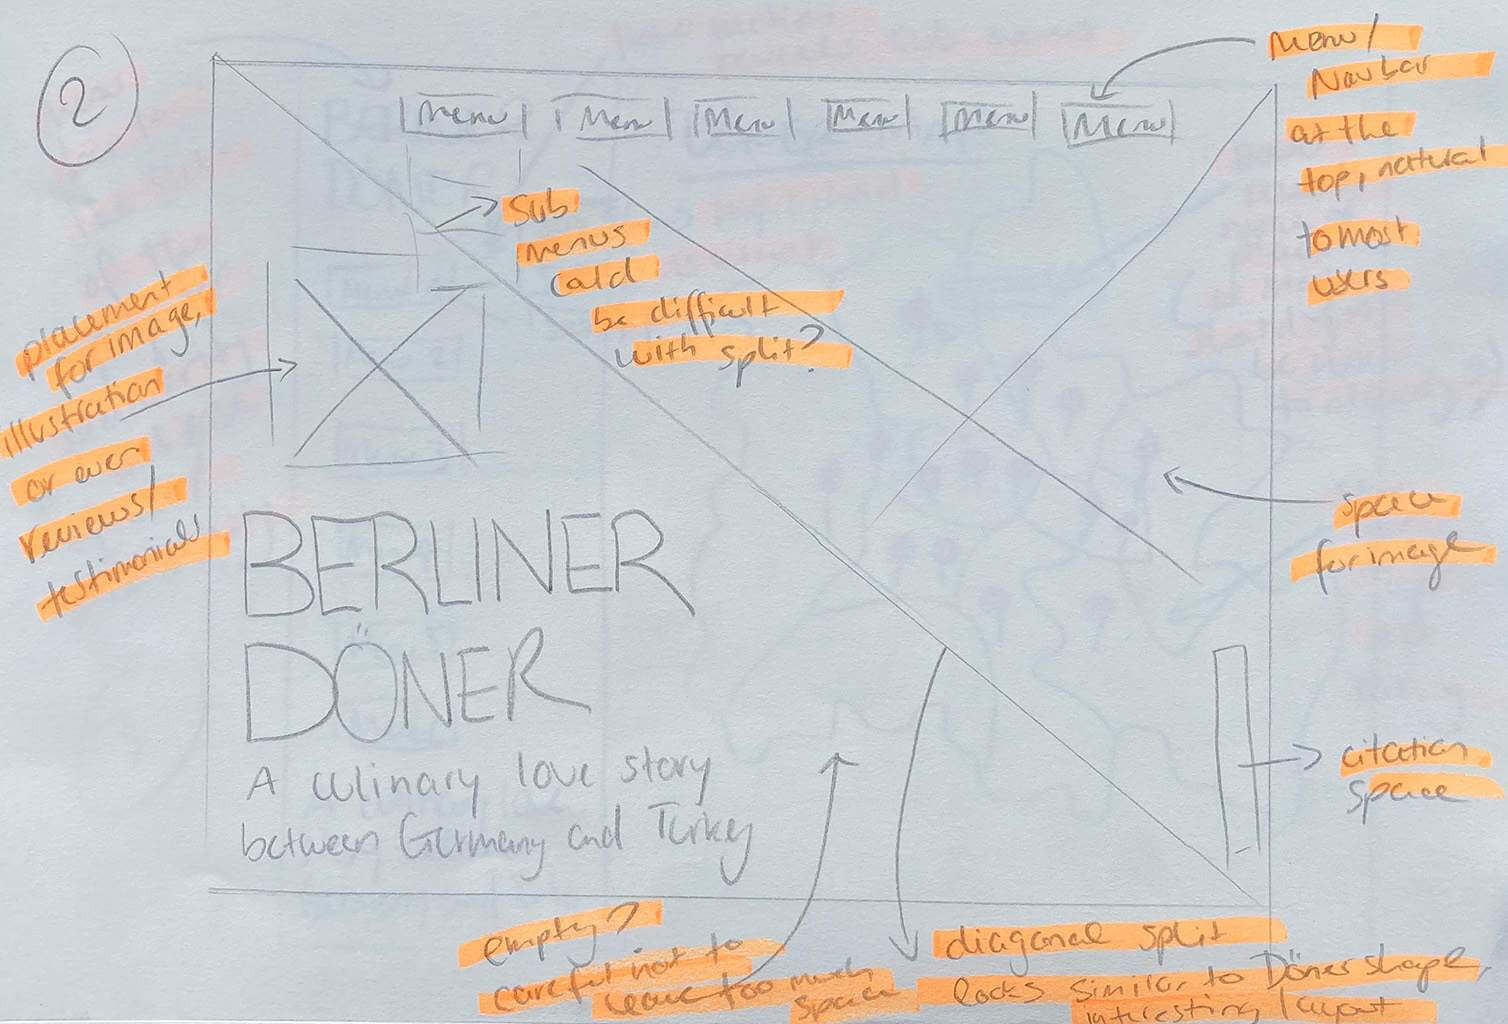 2
Menu
Menu
Menu
Menu
Menu
Menu
Menu/
Navbar
at the
top, natural
to most
users
Sub
menus
could
be difficult
with split?
placement
for image,
illustration
or even
reviews/
testimonials
space
for image
BERLINER
DÖNER
A culinary love story
between Germany and Turkey
citation
space
empty?
careful not to
leave too much
space
diagonal split
looks similar to Döner shape,
interesting layout